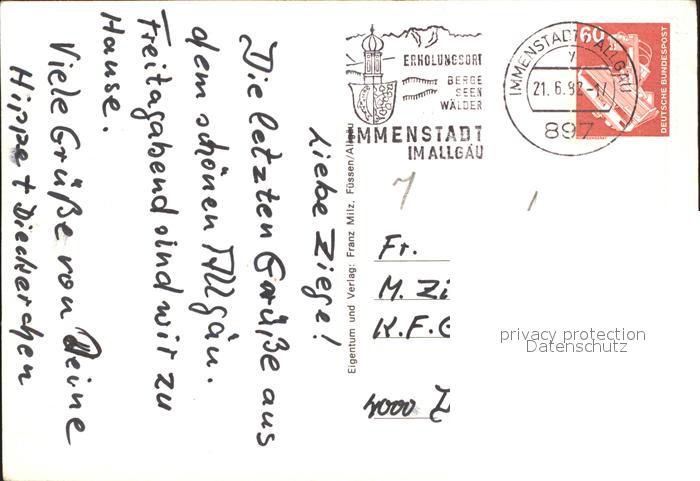 Liebe Ziege!
Die letzten Grüße aus
dem schönen Allgäu.
Freitagabend sind wir zu
Hause.
Viele Grüße von Deine
Hippe + Dieckerchen
Eigentum und Verlag: Franz Milz, Füssen/Allgäu
ERHOLUNGSORT
BERGE
SEEN
WÄLDER
IMMENSTADT
IM ALLGÄU
IMMENSTADT, ALLGÄU
y
21.6.82-17
897
60
DEUTSCHE BUNDESPOST
Fr.
M. Zi
K.F.G
4000 D
privacy protection
Datenschutz